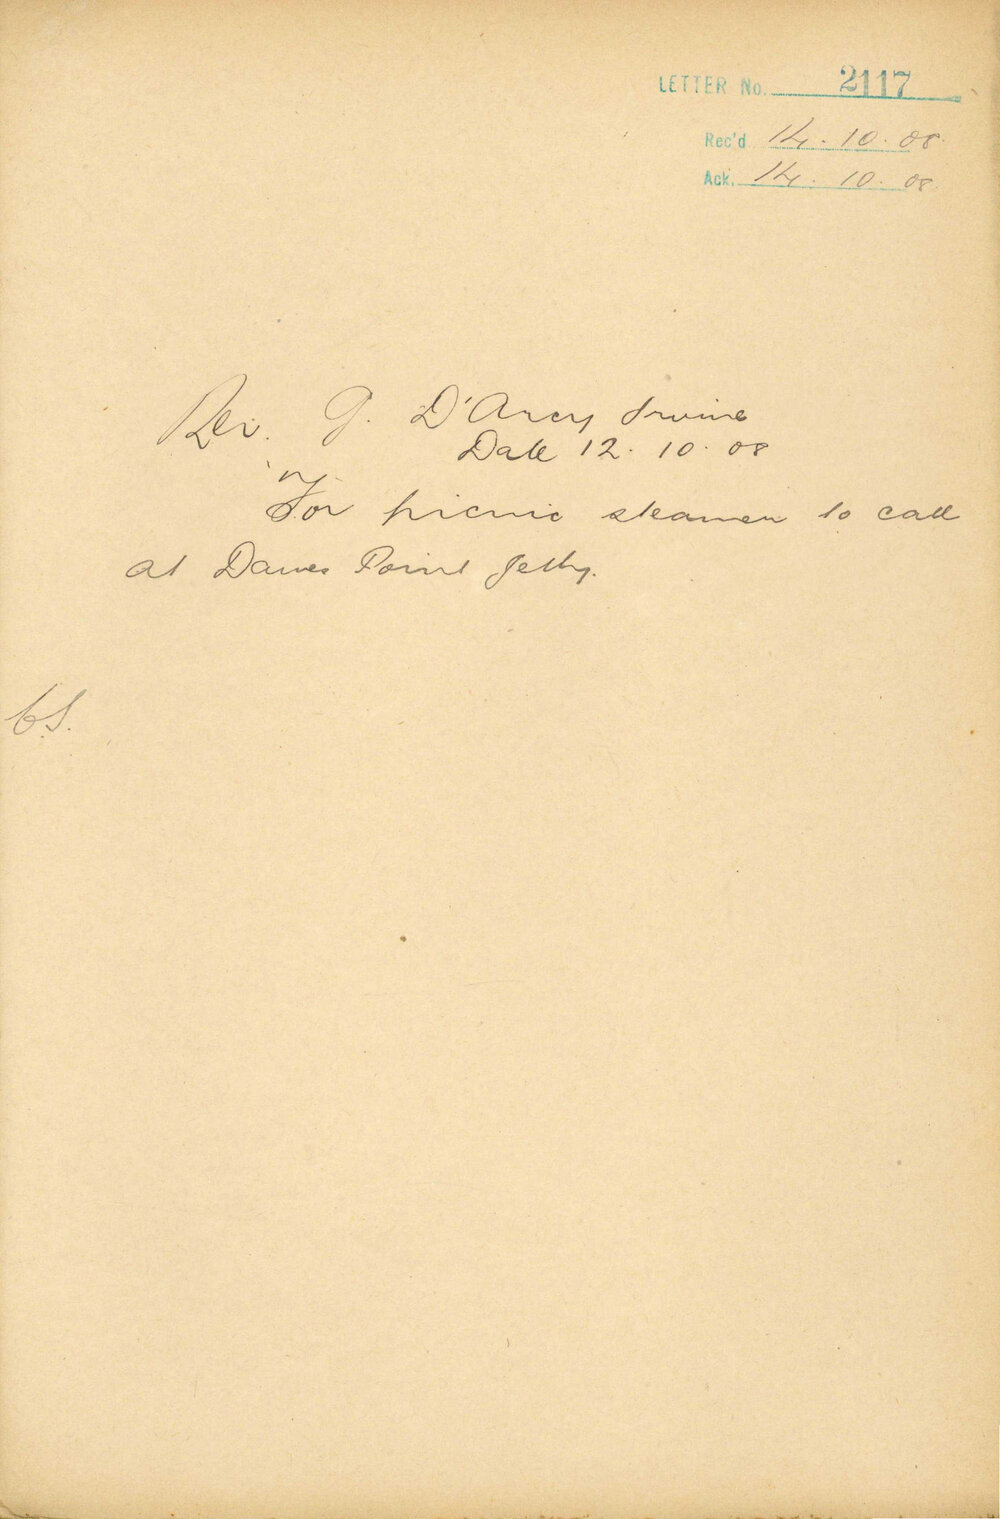 LETTER No. 2117
Rec'd 14.10.08.
Ack. 14.10.08.
Rev. G. D'Arcy Irvine
Date 12.10.08
For picnic steamer to call
at Dawes Point Jetty.